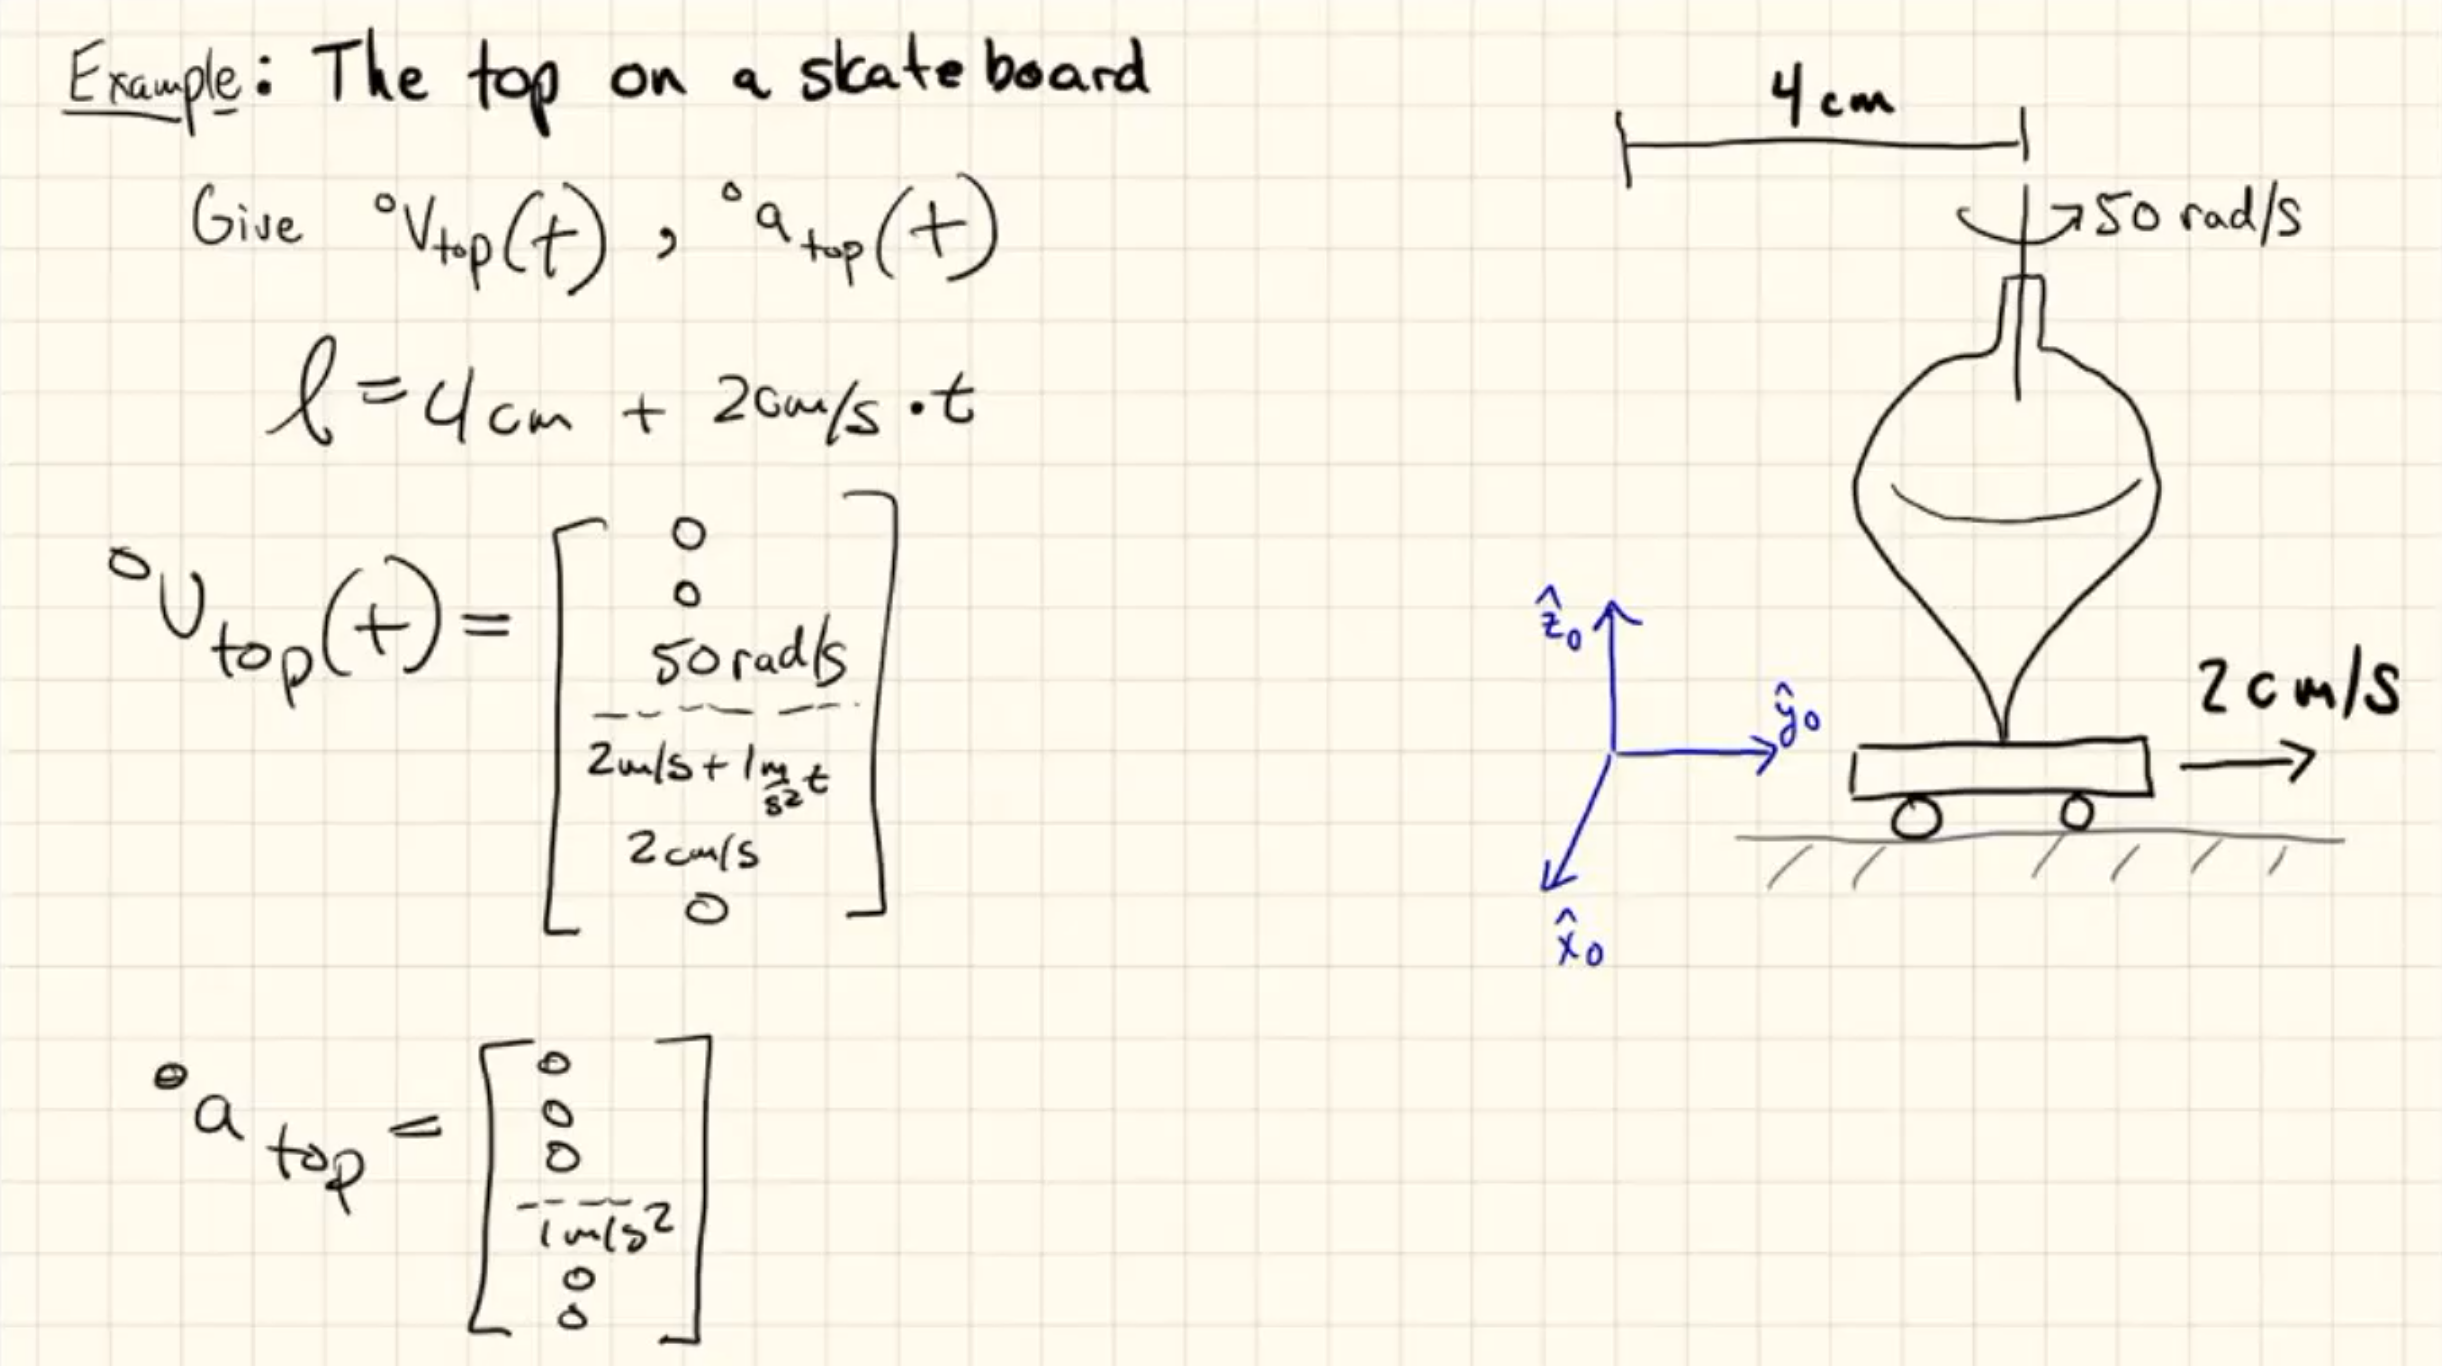 Example: The top on a skateboard
Give ⁰V_top(t), ⁰a_top(t)
l = 4cm + 2cm/s · t
⁰v_top(t) =
0
0
50 rad/s
2m/s + 1 m/s² t
2cm/s
0
⁰a_top =
0
0
0
1m/s²
0
0
4 cm
50 rad/s
ẑ₀
ŷ₀
x̂₀
2 cm/s